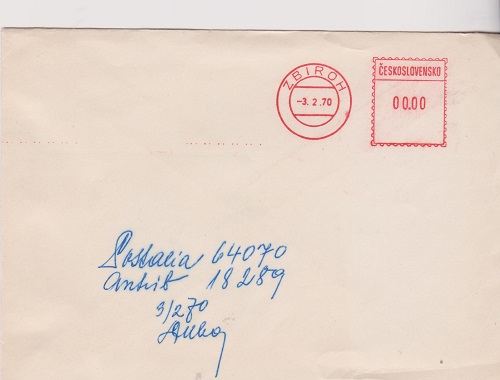 ZBIROH
-3. 2.70
ČESKOSLOVENSKO
00.00
Postalia 64070
18289
3/270